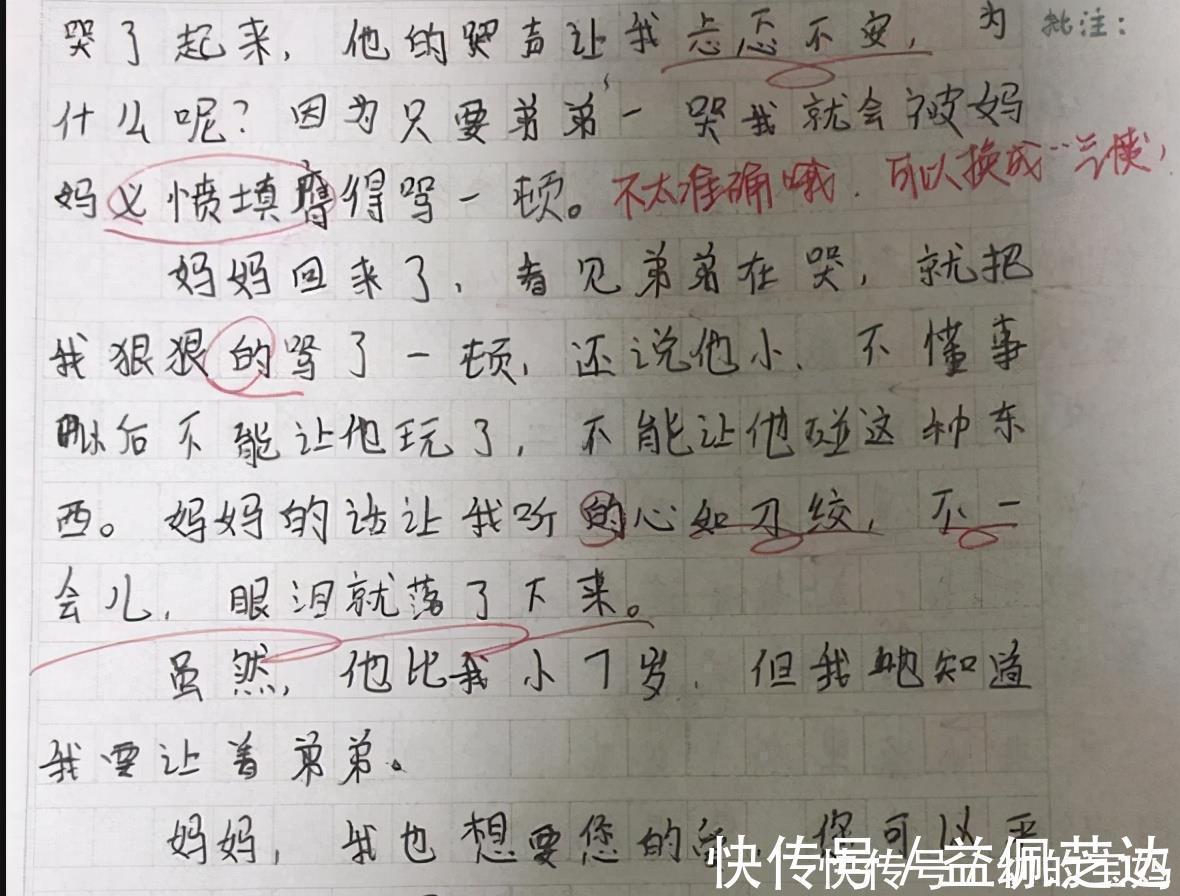 哭了起来,他的哭声让我忐忑不安,为
批注:
什么呢?因为只要弟弟一哭我就会被妈
妈义愤填膺得骂一顿。
不太准确哦.可以换成"
妈妈回来了,看见弟弟在哭,就把
我狠狠的骂了一顿,还说他小、不懂事
以后不能让他玩了,不能让他碰这种东
西。妈妈的话让我听的心如刀绞,不一
会儿,眼泪就落了下来。
虽然,他比我小7岁.但我也知道
我要让着弟弟。
妈妈,我也想要您的
您可以
快传号/益佩莲边
快传号